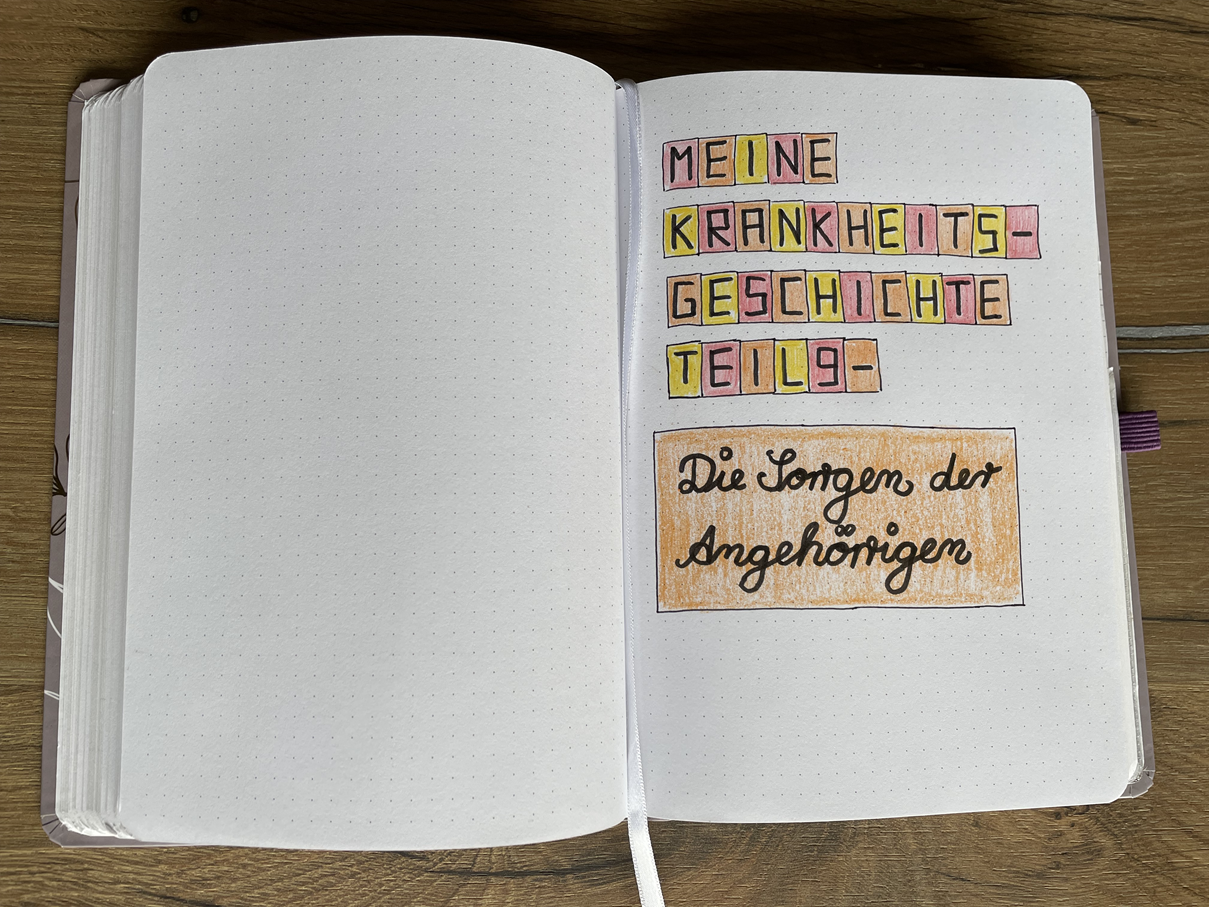 MEINE
KRANKHEITS-
GESCHICHTE
TEIL 9-
Die Sorgen der
Angehörigen